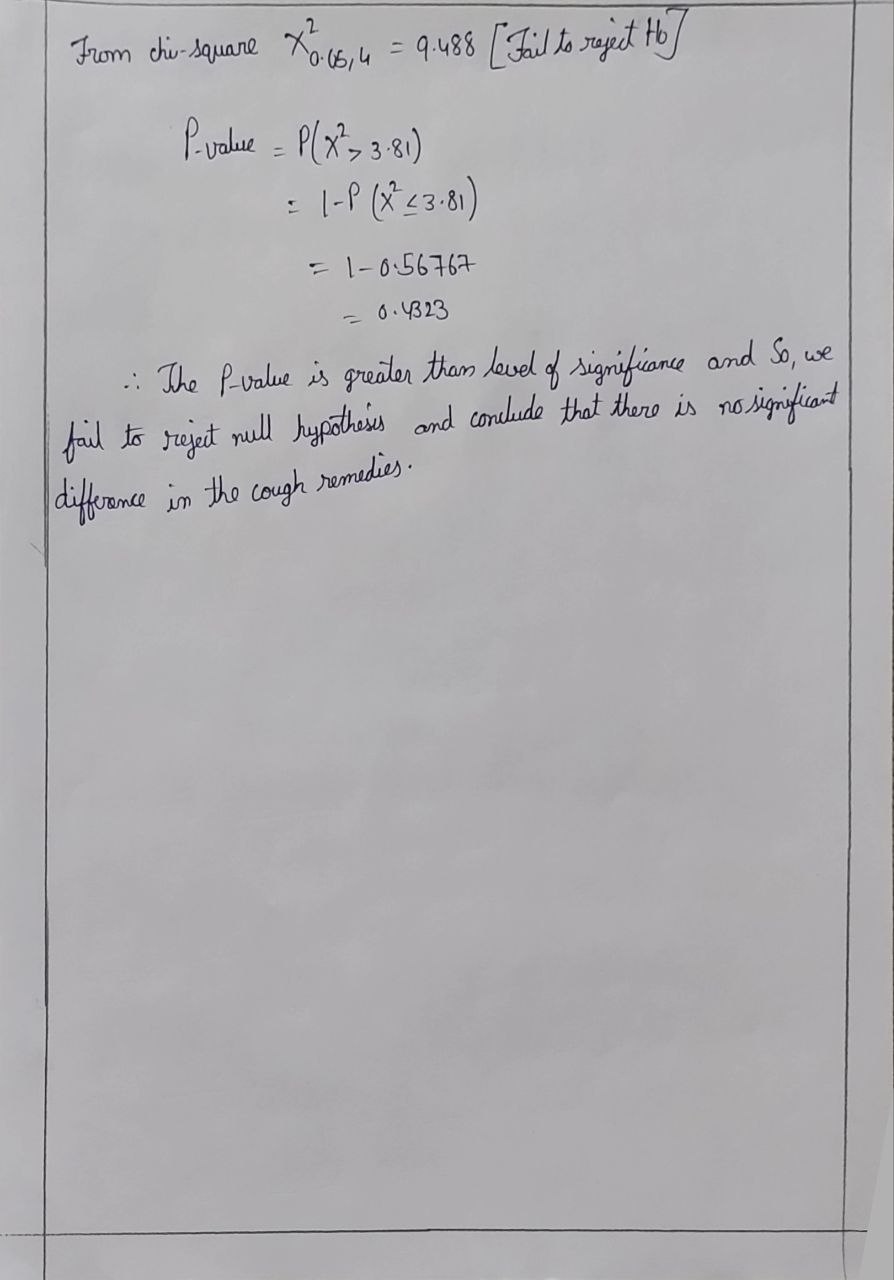 From chi-square X²0.05,4 = 9.488 [Fail to reject H0]
P-value = P(X² > 3.81)
= 1-P (X² ≤ 3.81)
= 1-0.56767
= 0.4323
∴ The P-value is greater than level of significance and So, we
fail to reject null hypothesis and conclude that there is no significant
difference in the cough remedies.